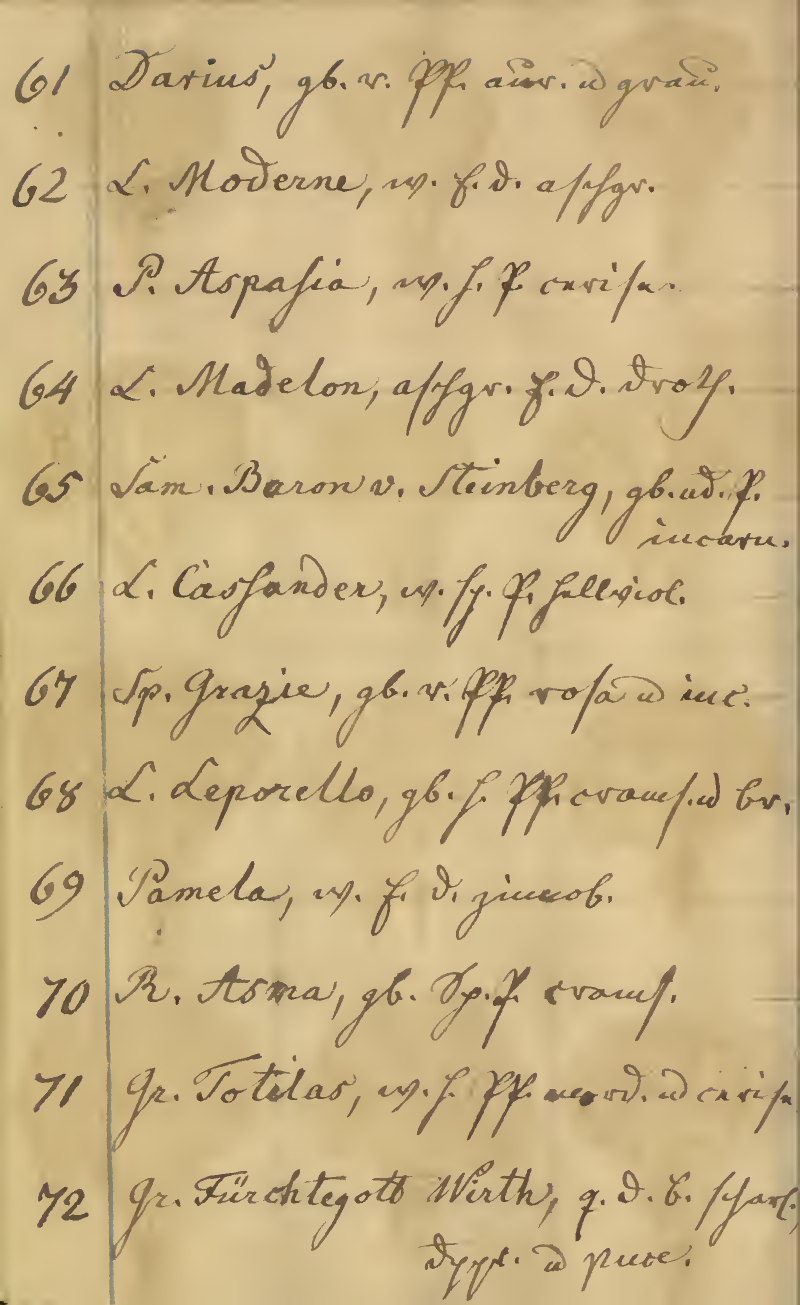 61 Darius, gb. r. Pp. aur. u grau.
62 L. Moderne, w. f. d. aschgr.
63 P. Aspasia, w. h. P. cerise.
64 L. Madelon, aschgr. f. d. droth.
65 Sam. Baron v. Steinberg, gb. ad. P.
incarn.
66 L. Cassander, w. sp. P. hellviol.
67 Sp. Grazie, gb. r. Pp. rosa u inc.
68 L. Leporello, gb. h. Pp. crams. u br.
69 Pamela, w. f. d. zinnob.
70 R. Asma, gb. Sp. P. crams.
71 Gr. Totilas, w. h. Pp. mord. u cerise
72 Gr. Fürchtegott Wirth, q. d. b. scharl.,
u puce.